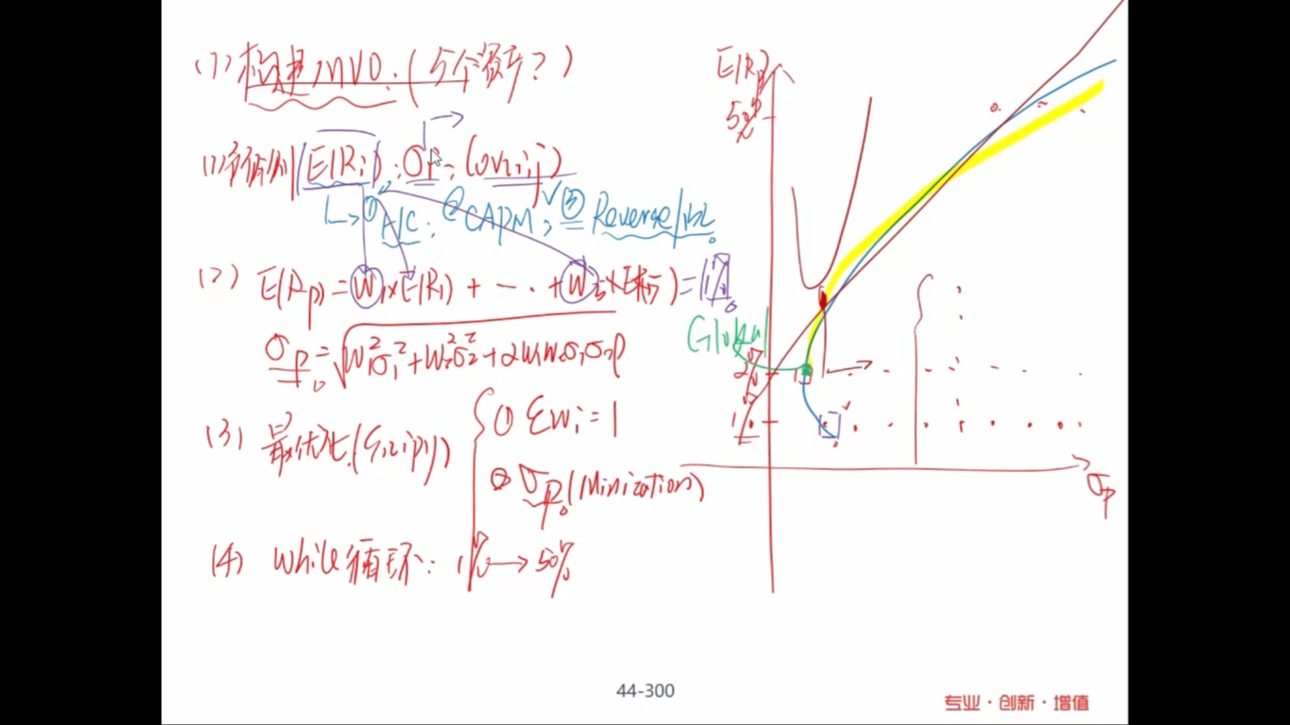 (1) 构建MVO.(5个资产?)
(1) 等估别 E(Ri); σp; Cov(i,j)
↳ ① A/C; ② CAPM; ✓ ③ Reverse/BL
(2) E(Rp) = W1×E(R1) + -- · + W5×E(R5) = 1%
σp = √W1²σ1² + W2²σ2² + 2W1W2σ1σ2ρ
(3) 最优化.(Scipy)
① Σwi = 1
② σp. (Minization)
(4) while循环: 1% → 50%
E(Rp)
5%
Global
2%
1%
σp
44-300
专业·创新·增值